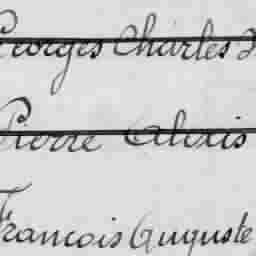 Georges Charles
Pierre Alexis
François Auguste